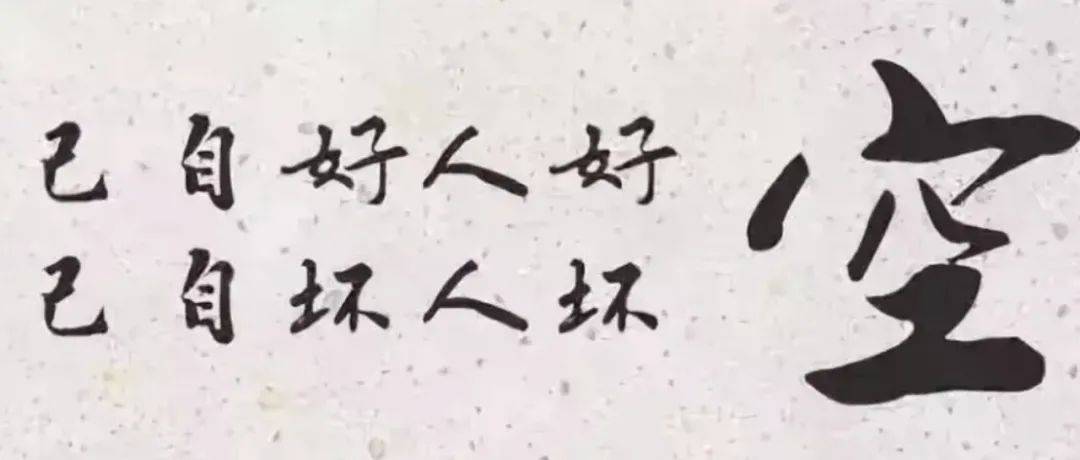 空
好人好自己
坏人坏自己